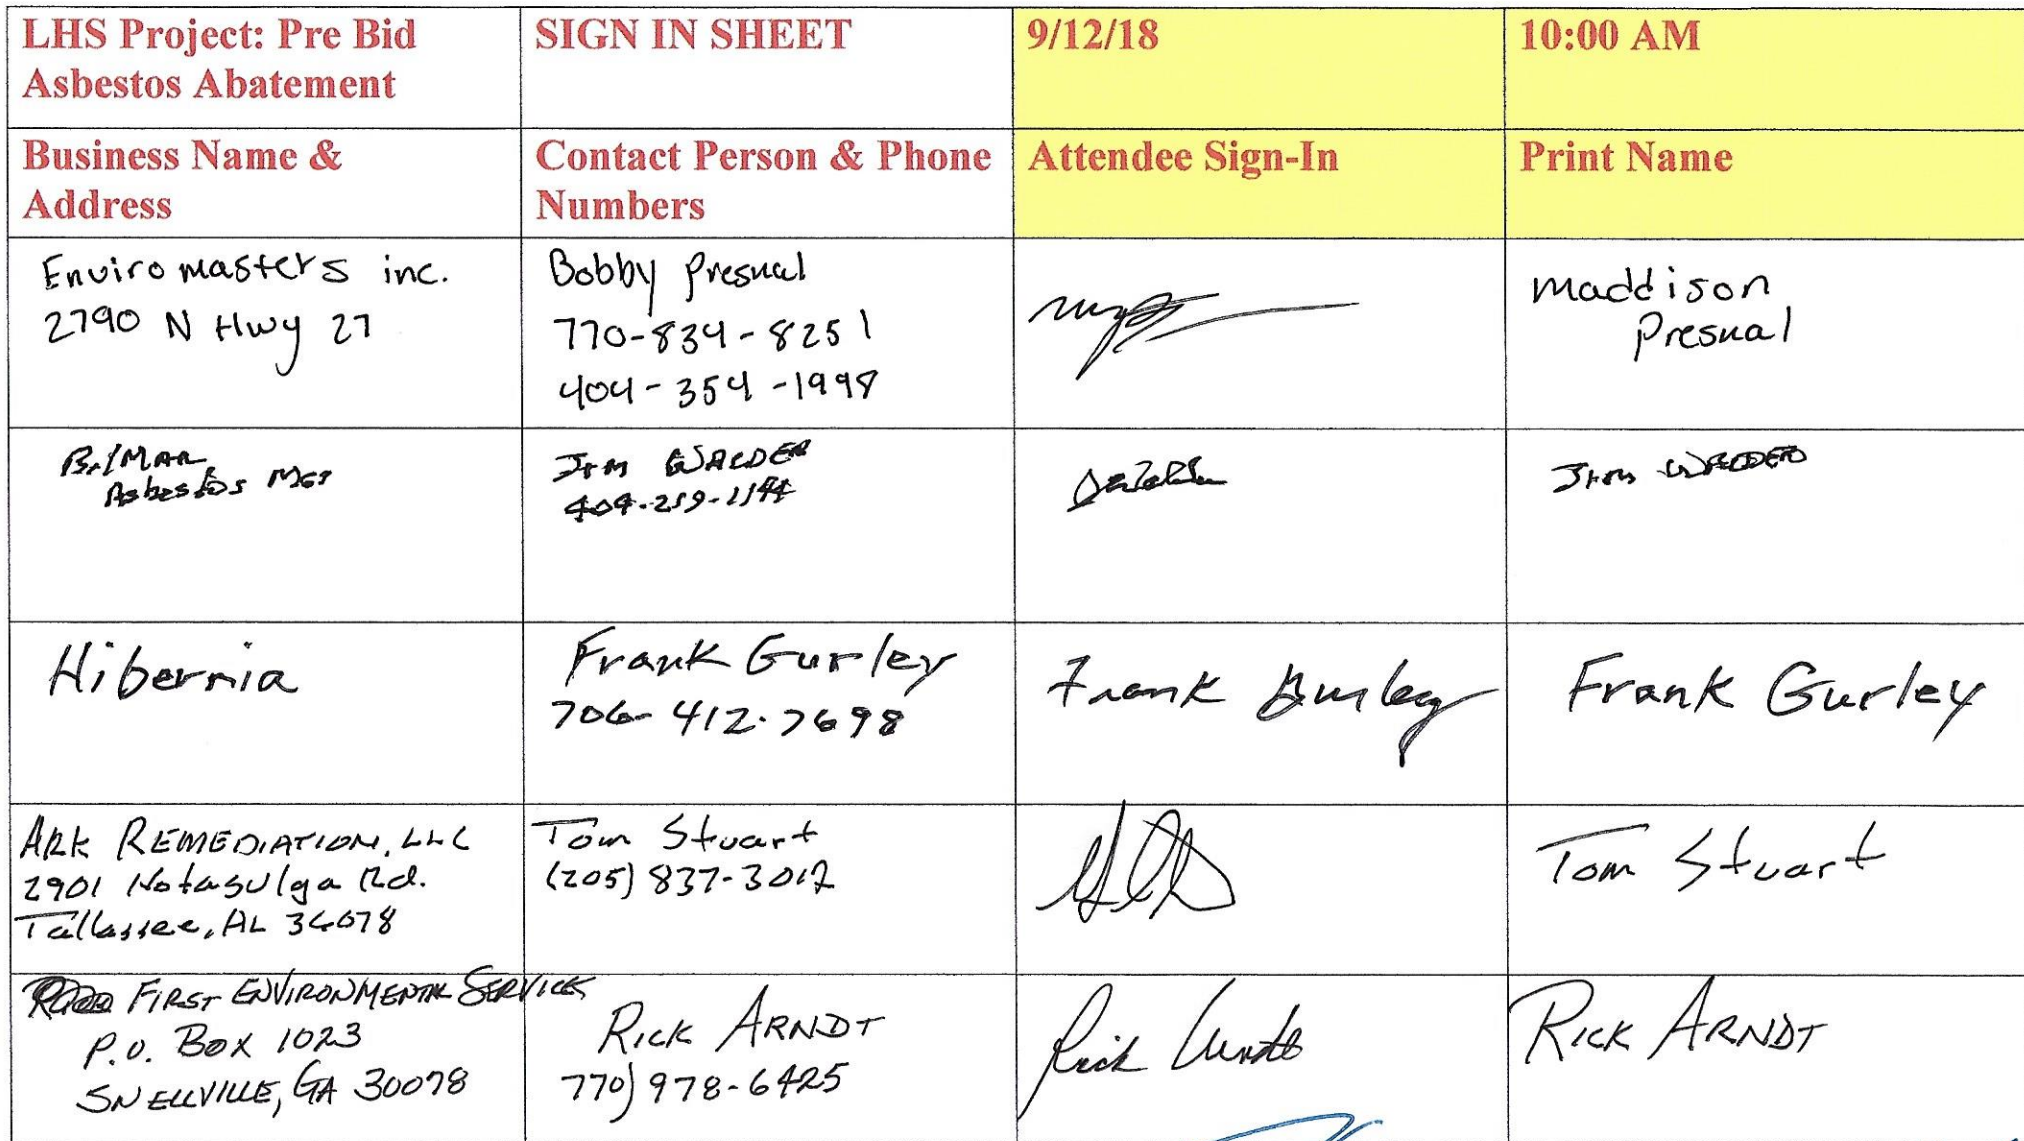 LHS Project: Pre Bid
Asbestos Abatement
SIGN IN SHEET
9/12/18
10:00 AM
Business Name &
Address
Contact Person & Phone
Numbers
Attendee Sign-In
Print Name
Enviromasters inc.
2790 N Hwy 27
Bobby Presnal
770-834-8251
404-354-1998
maddison
Presnal
Asbestos
Jim
Jim
Hibernia
Frank Gurley
706-412-7698
Frank Gurley
Frank Gurley
ARK REMEDIATION, LLC
2901 Notasulga Rd.
Tallassee, AL 36078
Tom Stuart
(205) 837-3012
Tom Stuart
FIRST ENVIRONMENTAL SERVICES
P.O. Box 1023
SNELLVILLE, GA 30078
RICK ARNDT
770) 978-6425
Rick Arndt
RICK ARNDT